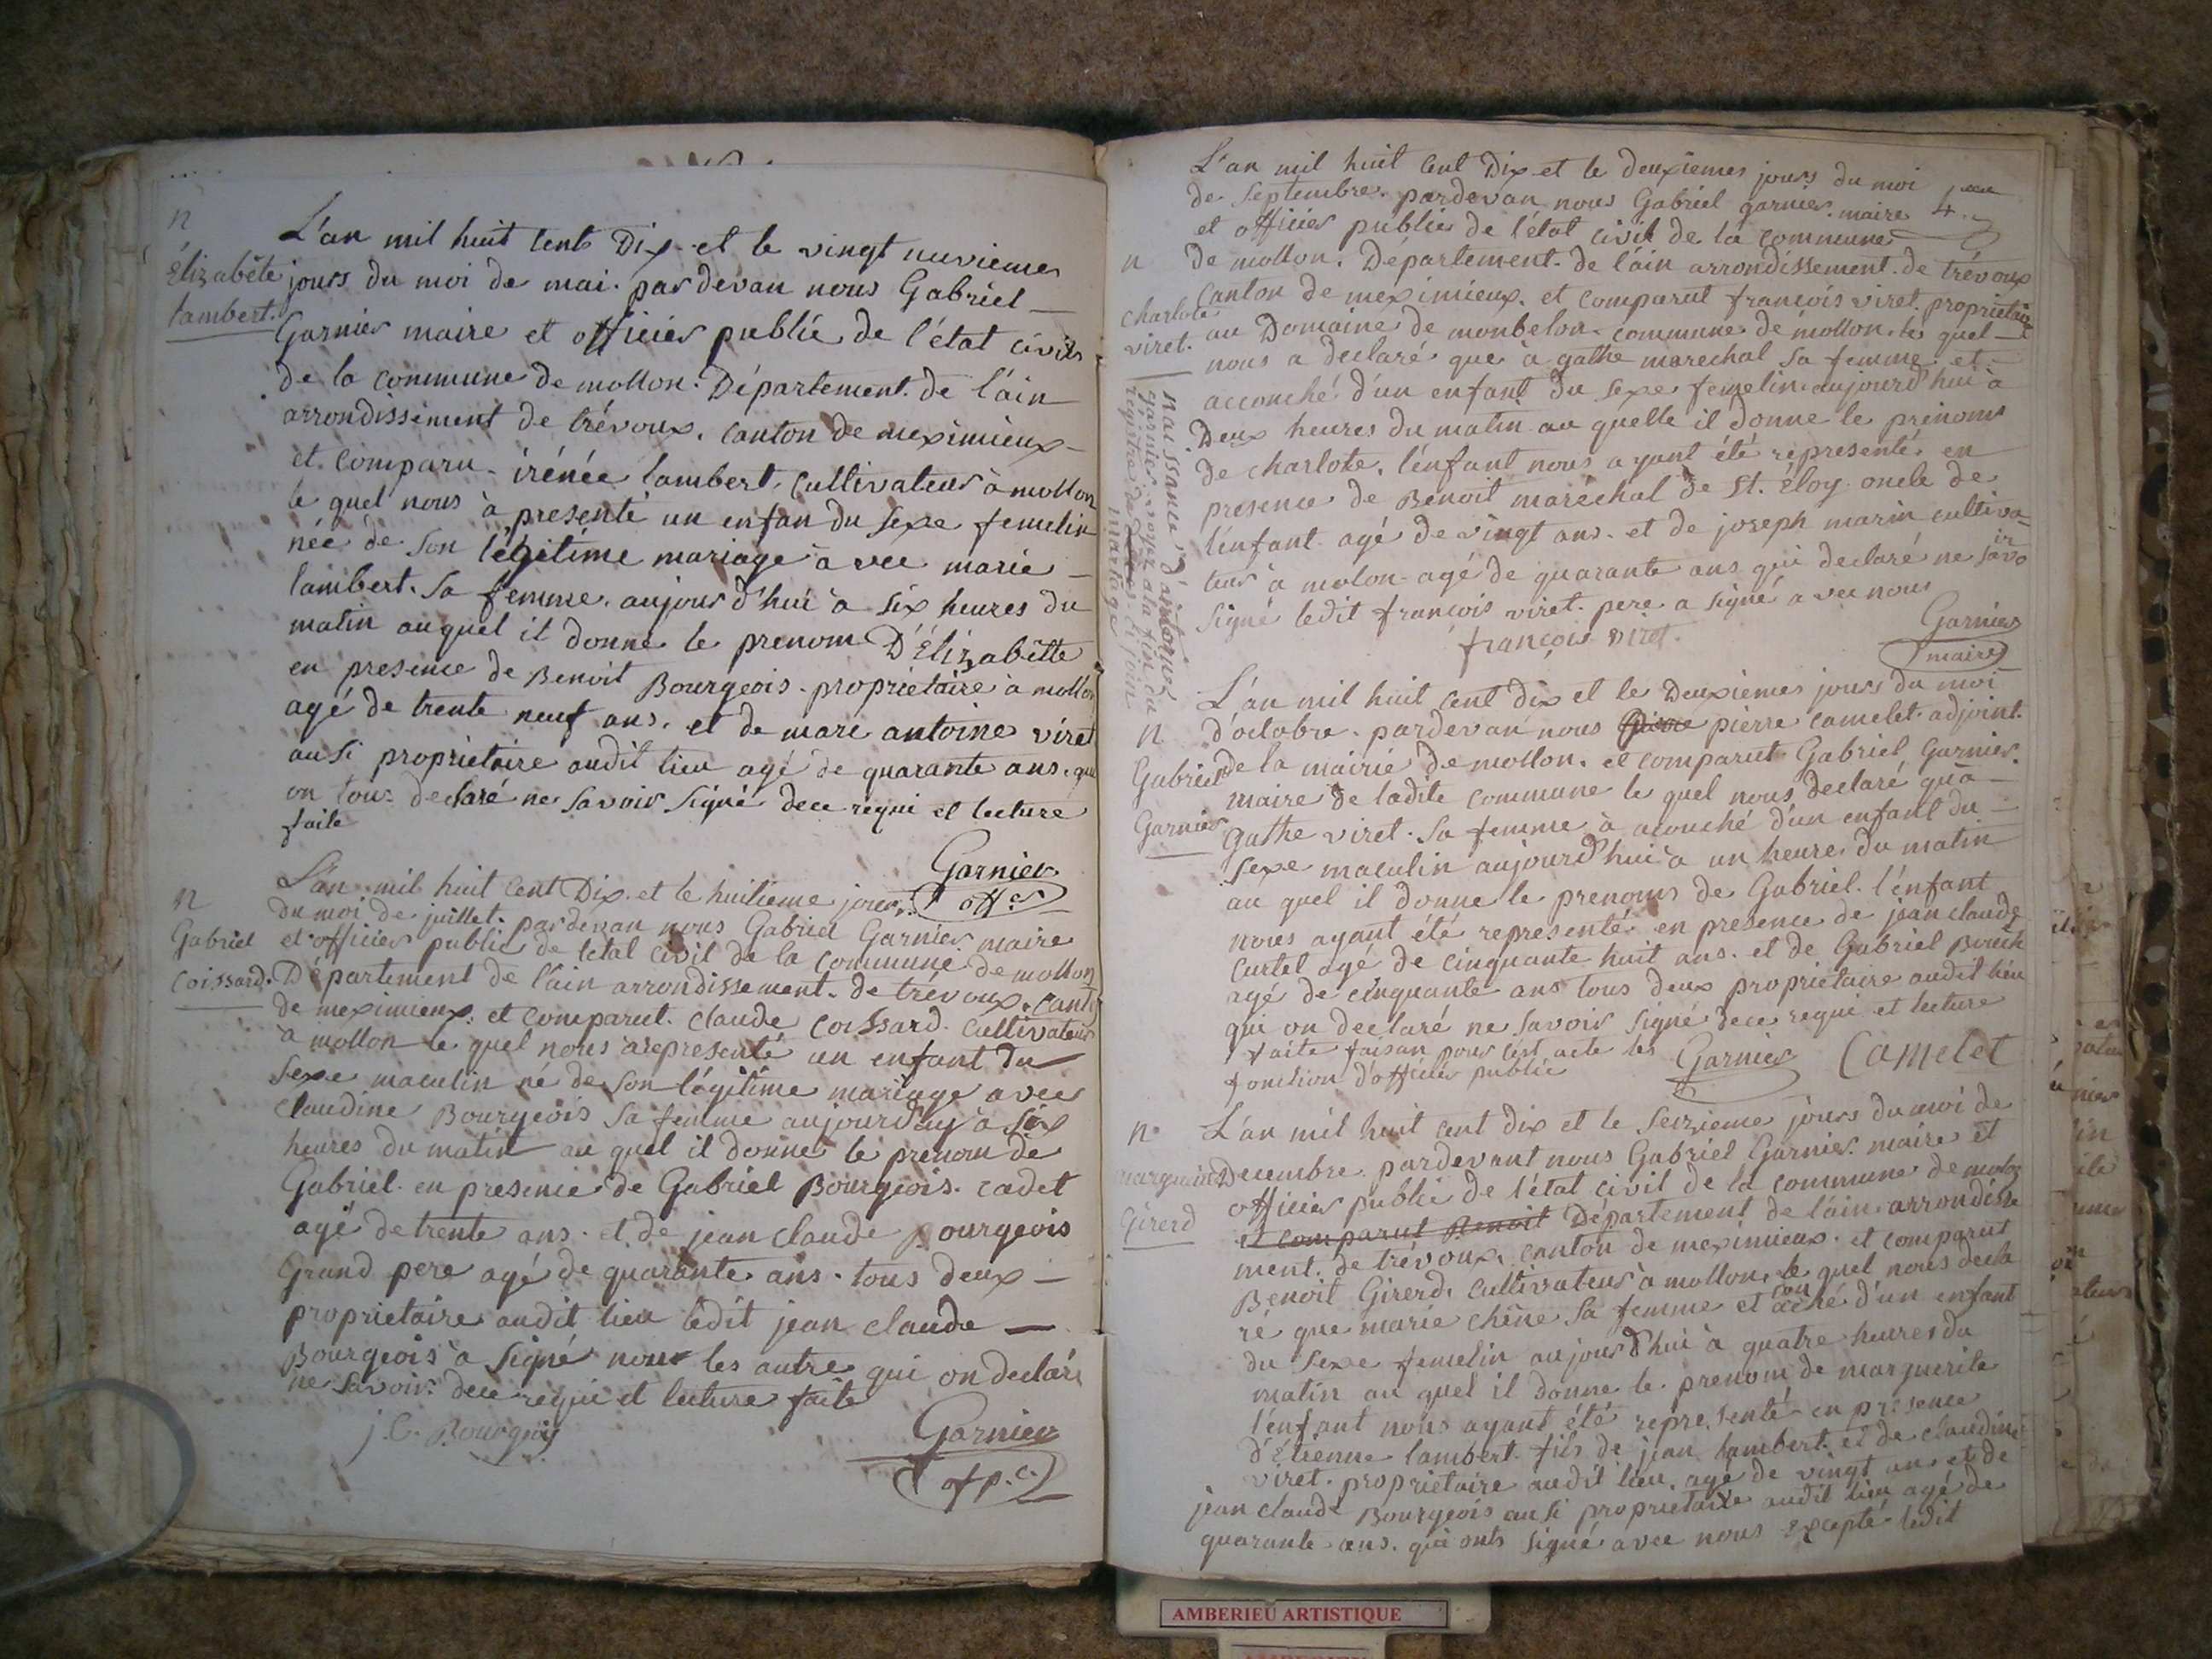 n
Élizabéte
lambert.
L'an mil huit Cent Dix et le vingt nuvieme
jours du moi de mai. par devan nous Gabriel
Garnier maire et officier publie de l'état civil
de la Commune de mollon. Département de l'ain
arrondissement de trévoux. Canton de meximieux
et Comparu irénée lambert, Cultivateur à mollon
le quel nous à presenté un enfan du sexe femelin
née de son légitime mariage avec marie
lambert. sa femme, aujourd'hui à six heures du
matin auquel il donne le prenom D'Élizabétte
en presence de Benoit Bourgeois proprietaire à mollon
agé de trente neuf ans, et de marc antoine viret
ausi proprietaire audit lieu agé de quarante ans, qui
on tous declaré ne savoir signé dece requi et lecture
faite
Garnier
off.er
n
Gabriel
Coissard.
L'an mil huit Cent Dix et le huitieme jour
du moi de juillet. pardevan nous Gabriel Garnier maire
et officier public de letat Civil de la Commune de mollon
Département de l'ain arrondissement de trévoux. Canton
de meximieux. et Comparut. Claude Coissard. Cultivateur
à mollon le quel nous arepresenté un enfant du
sexe maculin né de son légitime mariage avec
Claudine Bourgeois sa femme aujourduy à six
heures du matin au quel il donne le prenom de
Gabriel en presence de Gabriel Bourgeois. cadet
agé de trente ans. et de jean Claude Bourgeois
Grand pere agé de quarante ans. tous deux
proprietaire audit lieu ledit jean claude
Bourgeois à signé non les autre qui on declaré
ne savoir dece requi et lecture faite
j. C. Bourgeois
Garnier
of p.c.
L'an mil huit Cent Dix et le deuxiemes jours du moi
de Septembre. pardevan nous Gabriel garnier. maire
et officier publie de l'état civil de la commune
n
de mollon. Département de l'ain arrondissement de trévoux
Charlote
viret.
Canton de meximieux. et comparut françois viret proprietaire
au Domaine de monbelon commune de mollon. le quel
nous a declaré que à gathe marechal sa femme et
accouché d'un enfant du sexe femelin aujourd'hui à
Deux heures du matin au quelle il donne le prenoms
de charlote, l'enfant nous ayant été representé en
presence de Benoit maréchal de St. Éloy oncle de
l'enfant agé de vingt ans. et de joseph marin cultiva-
teur à molon agé de quarante ans qui declaré ne savoir
signé ledit françois viret. pere a signé avec nous
françois viret.
Garnier
maire
naissance d'antoine
garnier voyez a la fin du
registre de ci join
mariage
n
Gabriel
Garnier
L'an mil huit cent dix et le Deuxiemes jours du moi
d'octobre. pardevan nous pierre camelet adjoint.
de la mairie de mollon. et comparut Gabriel Garnier.
maire de ladite commune le quel nous declaré qua
gathe viret. sa femme à acouché d'un enfant du
sexe maculin aujourd'hui à un heure du matin
au quel il donne le prenoms de Gabriel. l'enfant
nous ayant été representé en presence de jean claude
Curtet agé de cinquante huit ans. et de Gabriel
agé de cinquante ans tous deux proprietaire audit lieu
qui on declaré ne savoir signé dece requi et lecture
faite faisan pour cest acte les
fonction d'officier publie
Garnier Camelet
n
Girerd
L'an mil huit cent dix et le seizieme jours du moi de
Decembre. pardevant nous Gabriel Garnier. maire et
officier publie de l'état civil de la commune de molon
et comparut Benoit Département de l'ain arrondisse
ment. de trévoux, canton de meximieux. et comparut
Benoit Girerd, Cultivateur à mollon, le quel nous decla
ré que marie chêne sa femme et acouché d'un enfant
du sexe femelin aujourd'hui à quatre heures du
matin au quel il donne le prenom de marguerite
l'enfant nous ayant été representé en presence
d'Etienne lambert fils de jean lambert et de claudine
viret. proprietaire audit lieu, agé de vingt an et de
jean claude Bourgeois ausi proprietaire audit lieu agé de
quarante ans. qui onts signé avec nous excepté ledit
AMBERIEU ARTISTIQUE